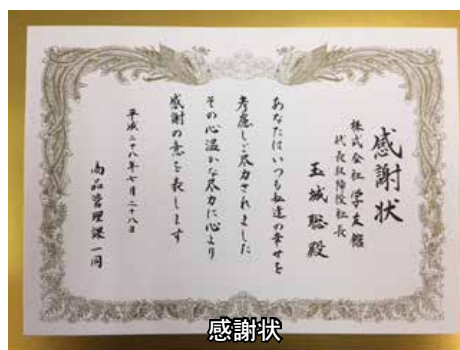 感謝状
株式会社 学友館
代表取締役社長
玉城聡殿
あなたはいつも私達の幸せを
考慮しご尽力されました
その心温かな尽力に心より
感謝の意を表します
平成二十八年七月二十八日
商品管理課一同
感謝状